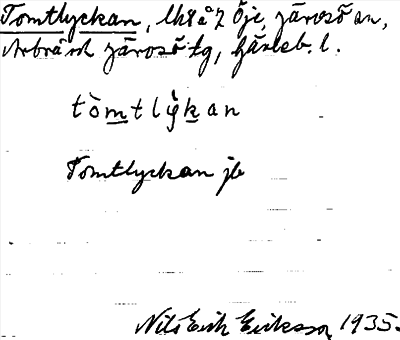 Tomtlyckan, Öje, Järvsö sn,
Arbrå och Järvsö tg, Gävleb. l.
tòmtlỳkan
Tomtlyckan jb
Nils Erik Eriksson 1935.